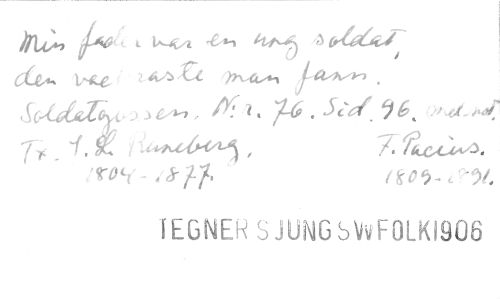 Min fader var en ung soldat,
den vackraste man fann.
Soldatgossen. N:r. 76. Sid. 96. med not.
Tx. J. L. Runeberg. F. Pacius.
1804-1877. 1809-1891.
TEGNER SJUNG SWFOLK1906